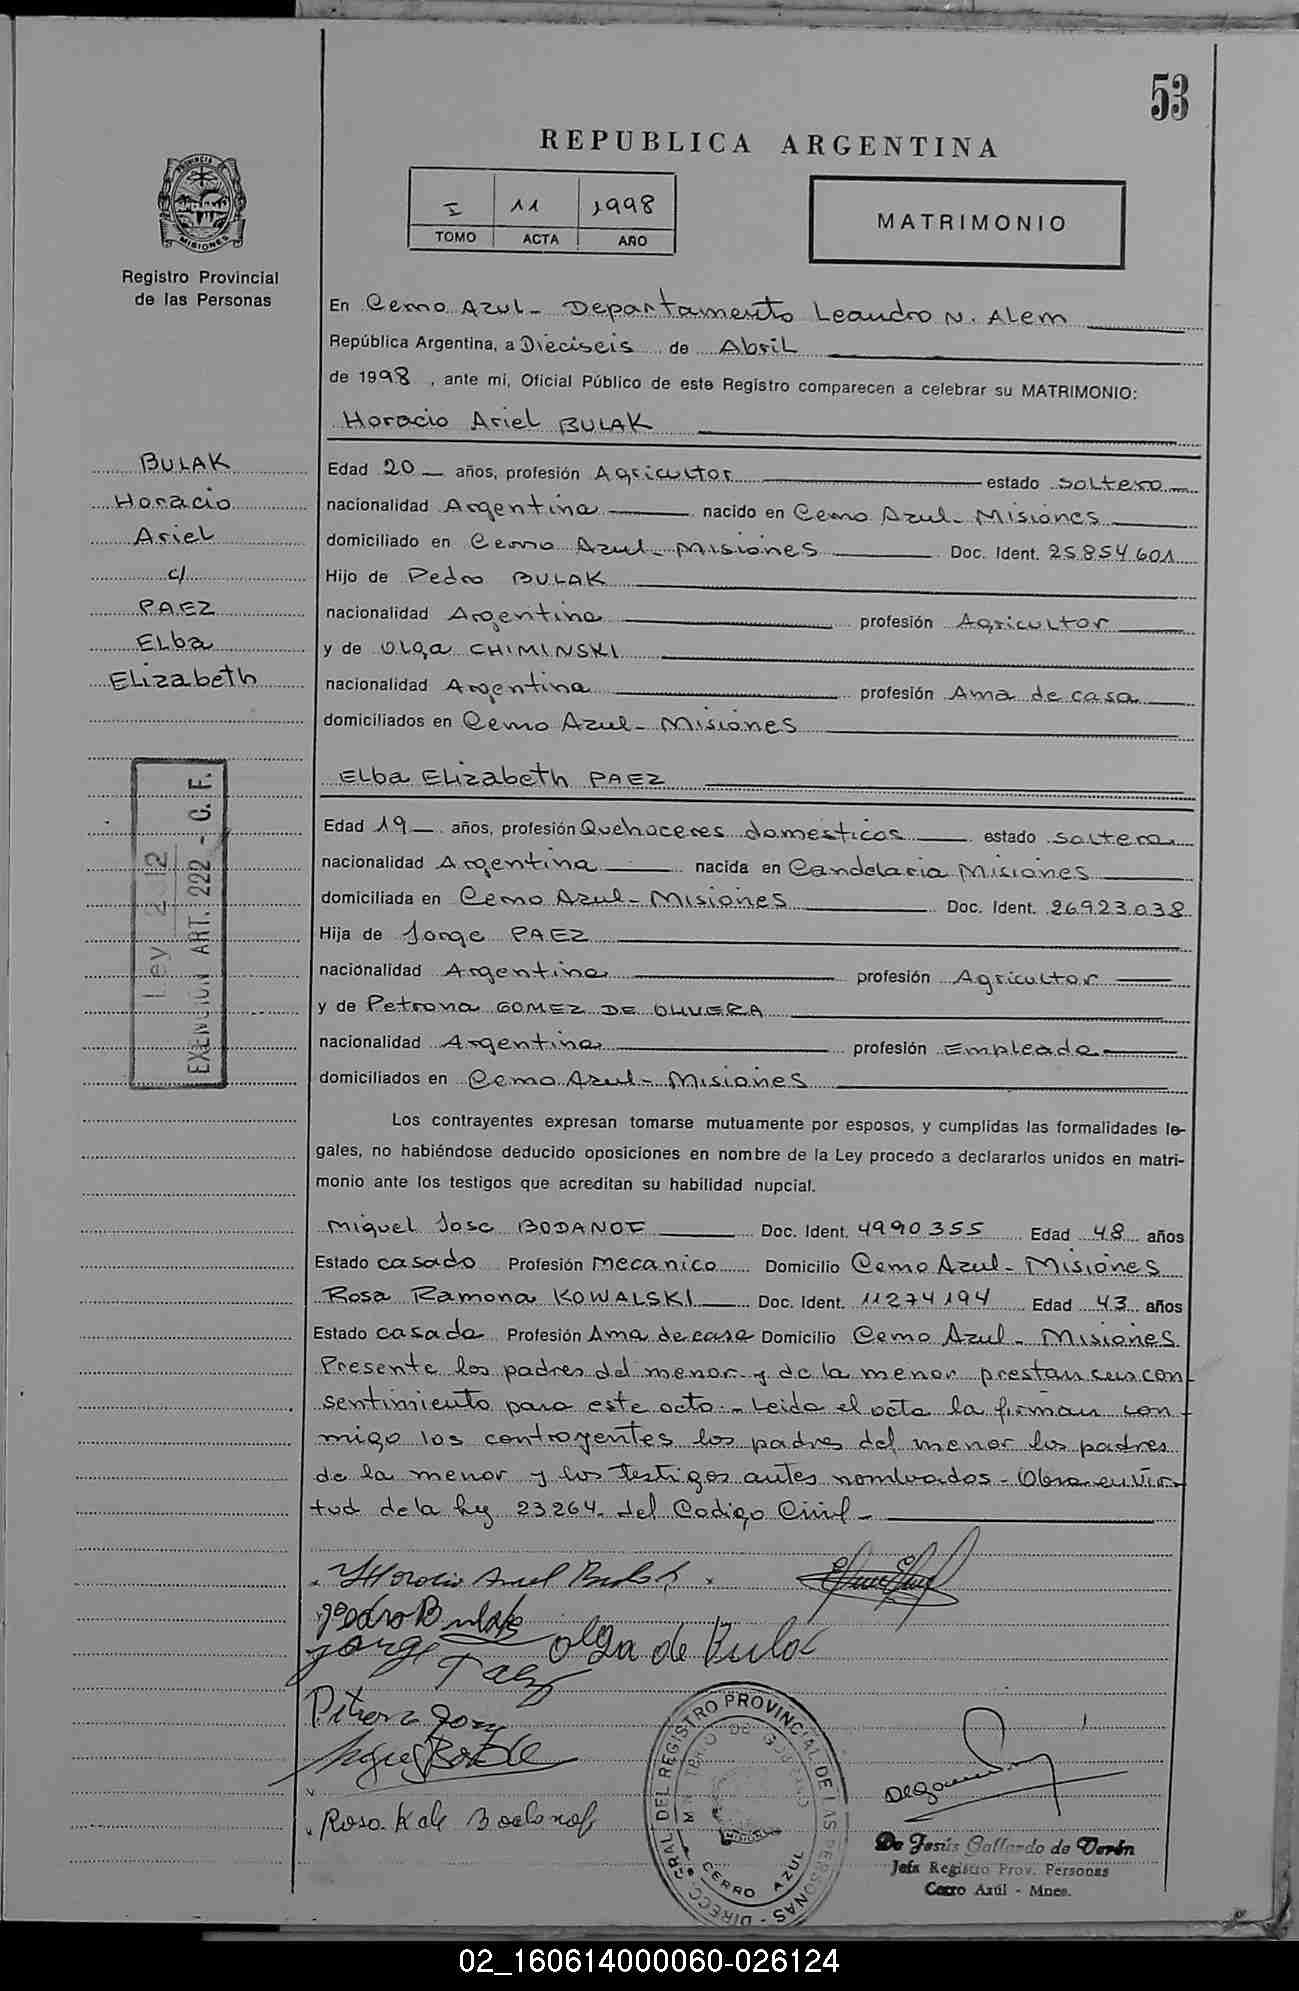 53
REPUBLICA ARGENTINA
I 11 1998
TOMO ACTA AÑO
MATRIMONIO
PROVINCIA DE
MISIONES
Registro Provincial
de las Personas
En Cerro Azul - Departamento Leandro N. Alem
República Argentina, a Dieciseis de Abril
de 1998, ante mi, Oficial Público de este Registro comparecen a celebrar su MATRIMONIO:
Horacio Ariel BULAK
BULAK
Horacio
Ariel
c/
PAEZ
Elba
Elizabeth
Edad 20 años, profesión Agricultor estado soltero
nacionalidad Argentina nacido en Cerro Azul - Misiones
domiciliado en Cerro Azul - Misiones Doc. Ident. 25.854.601
Hijo de Pedro BULAK
nacionalidad Argentina profesión Agricultor
y de Olga CHIMINSKI
nacionalidad Argentina profesión Ama de casa
domiciliados en Cerro Azul - Misiones
Elba Elizabeth PAEZ
Edad 19 años, profesión Quehaceres domesticos estado soltera
nacionalidad Argentina nacida en Candelaria Misiones
domiciliada en Cerro Azul - Misiones Doc. Ident. 26.923.038
Hija de Jorge PAEZ
nacionalidad Argentina profesión Agricultor
y de Petrona GOMEZ DE OLIVERA
nacionalidad Argentina profesión Empleada
domiciliados en Cerro Azul - Misiones
Ley
EXENCION ART. 222 - C. F.
Los contrayentes expresan tomarse mutuamente por esposos, y cumplidas las formalidades le-
gales, no habiéndose deducido oposiciones en nombre de la Ley procedo a declararlos unidos en matri-
monio ante los testigos que acreditan su habilidad nupcial.
Miguel Jose BODANOF Doc. Ident. 4990355 Edad 48 años
Estado casado Profesión Mecanico Domicilio Cerro Azul - Misiones
Rosa Ramona KOWALSKI Doc. Ident. 11274194 Edad 43 años
Estado casada Profesión Ama de casa Domicilio Cerro Azul - Misiones
Presente los padres del menor y de la menor prestan su con-
sentimiento para este acto.- Leida el acta la firman con-
migo los contrayentes los padres del menor los padres
de la menor y los testigos antes nombrados - Obra en vir-
tud de la ley 23264. del Codigo Civil -
Horacio Ariel Bulak
Pedro Bulak
Olga de Bulak
Jorge Paez
Petrona Gomez
Rosa K de Bodanof
DIRECC. GRAL. DEL REGISTRO PROVINCIAL DE LAS PERSONAS
MISIONES
CERRO AZUL
De Jesús Gallardo de Verón
Jefa Registro Prov. Personas
Cerro Azúl - Mnes.
02_160614000060-026124